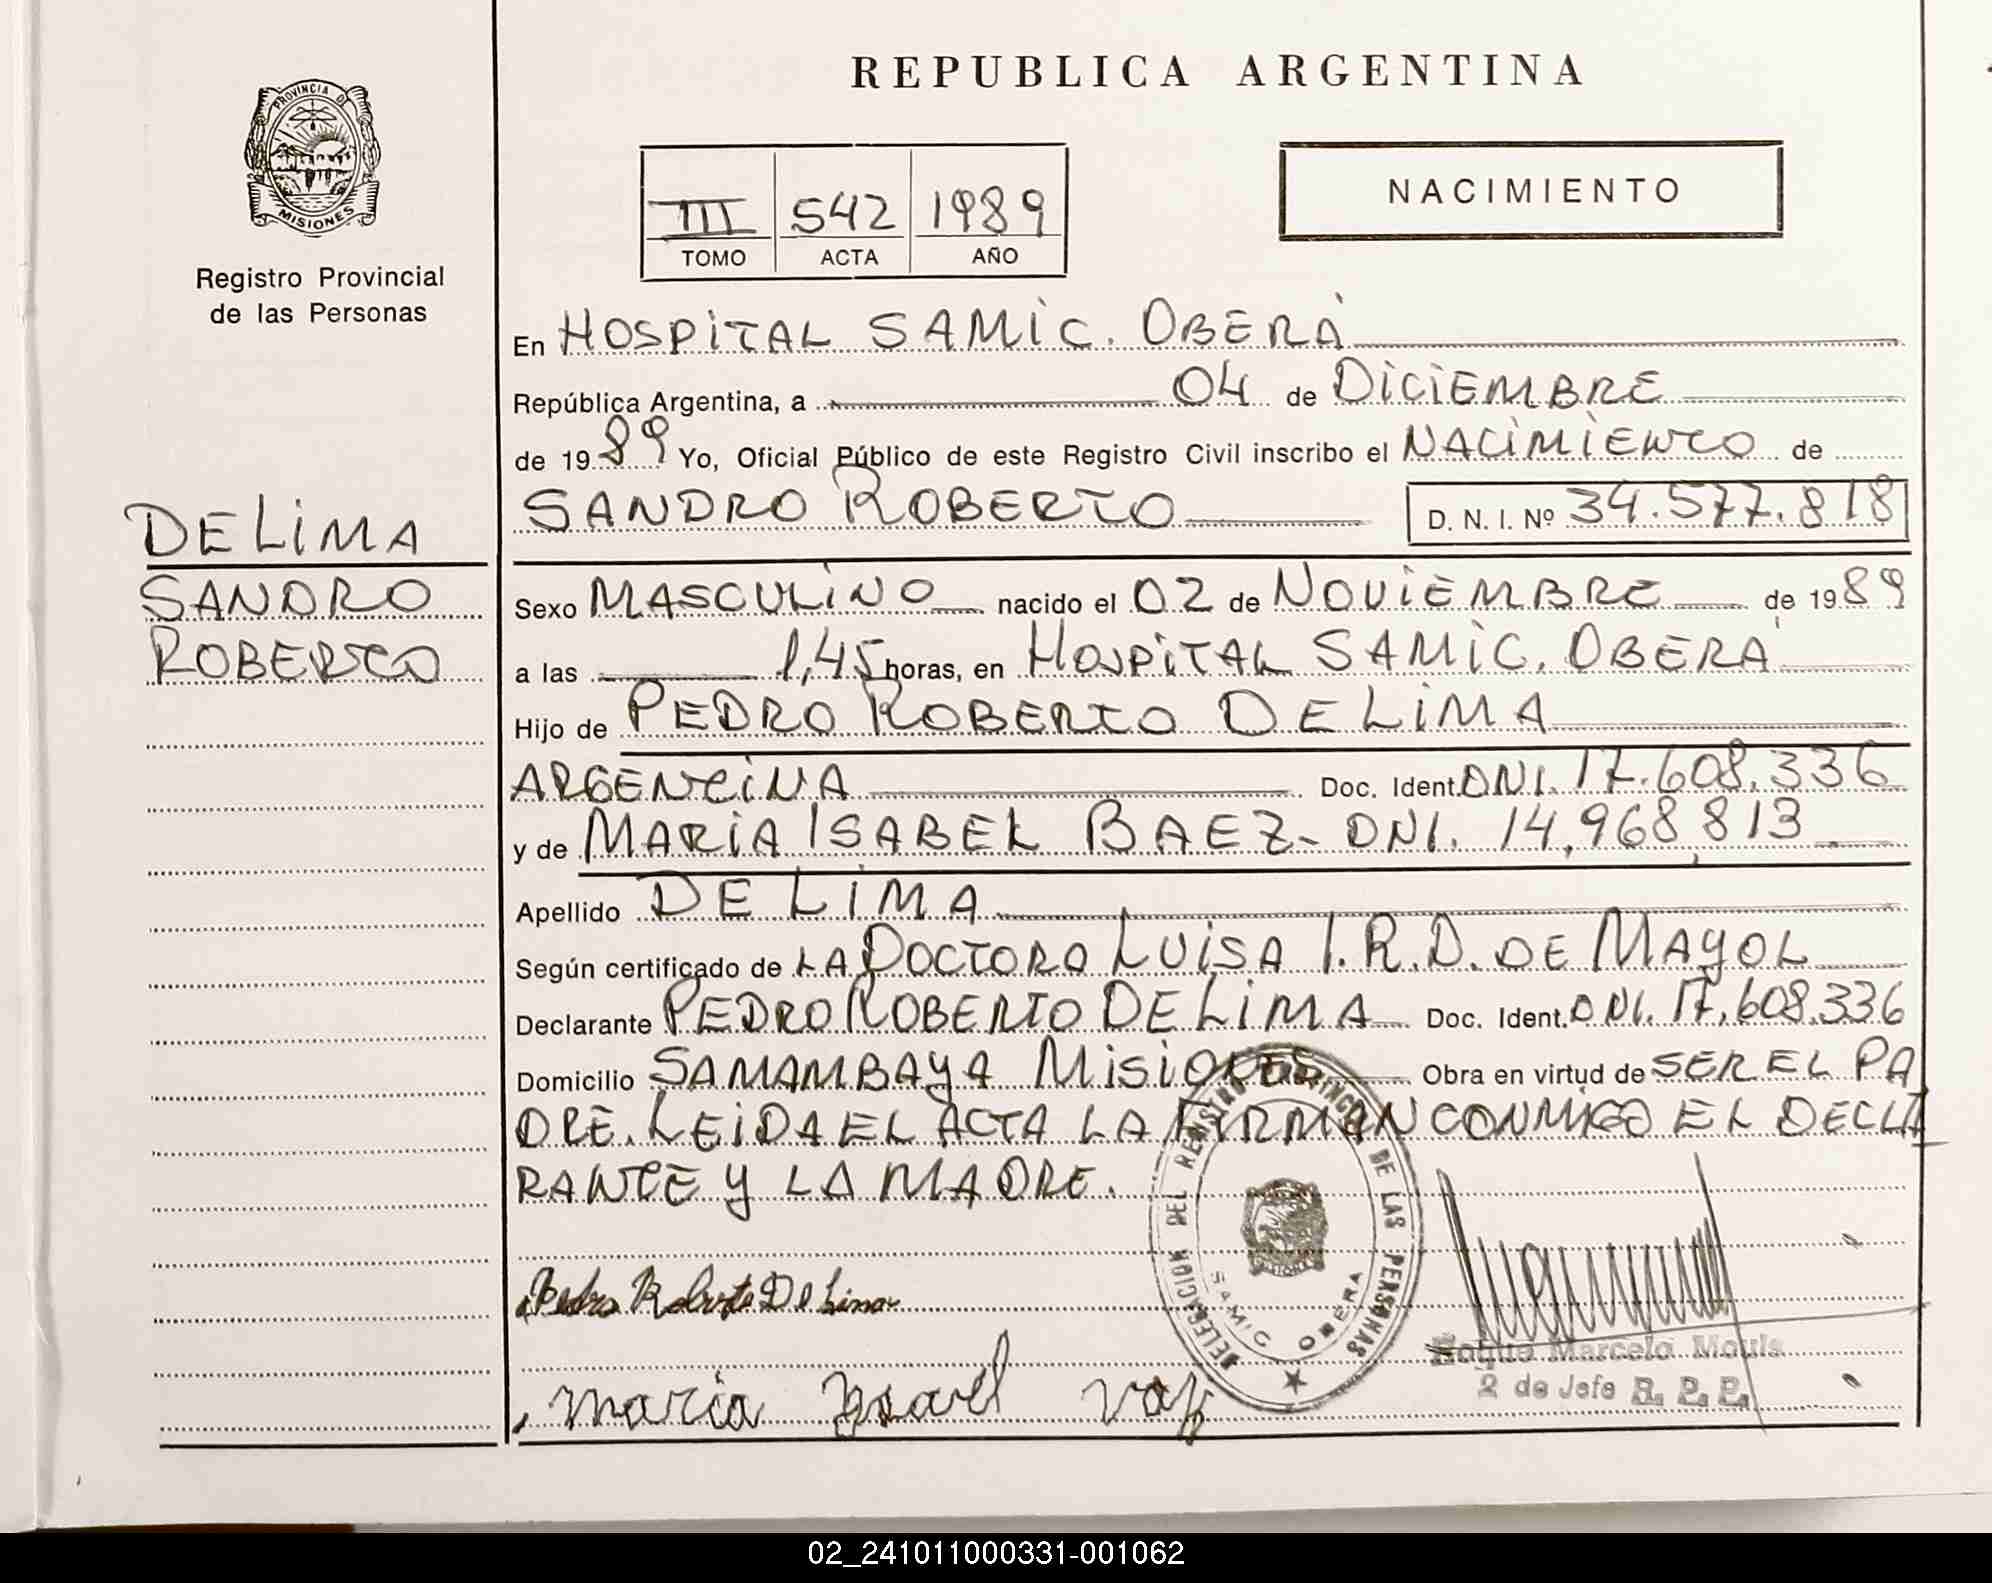 PROVINCIA DE
MISIONES
Registro Provincial
de las Personas
DE LIMA
SANDRO
ROBERTO
REPUBLICA ARGENTINA
III 542 1989
TOMO ACTA AÑO
NACIMIENTO
En HOSPITAL SAMIC. OBERÁ
República Argentina, a 04 de DICIEMBRE
de 1989 Yo, Oficial Público de este Registro Civil inscribo el NACIMIENTO de
SANDRO ROBERTO D. N. I. Nº 34.577.818
Sexo MASCULINO nacido el 02 de NOVIEMBRE de 1989
a las 1,45 horas, en HOSPITAL SAMIC. OBERÁ
Hijo de PEDRO ROBERTO DE LIMA
ARGENTINA Doc. Ident. DNI. 17.608.336
y de MARIA ISABEL BAEZ - DNI. 14,968,813
Apellido DE LIMA
Según certificado de LA DOCTORA LUISA I. R. D. DE MAYOL
Declarante PEDRO ROBERTO DE LIMA Doc. Ident. DNI. 17,608.336
Domicilio SAMAMBAYA MISIONES Obra en virtud de SER EL PA
DRE. LEIDA EL ACTA LA FIRMAN CONMIGO EL DECLA
RANTE Y LA MADRE.
Pedro Roberto De Lima
maria ysavel vaz
DELEGACION DEL REGISTRO PROVINCIAL DE LAS PERSONAS
SAMIC OBERA
Roque Marcelo
2 da Jefe R. P. P.
02_241011000331-001062